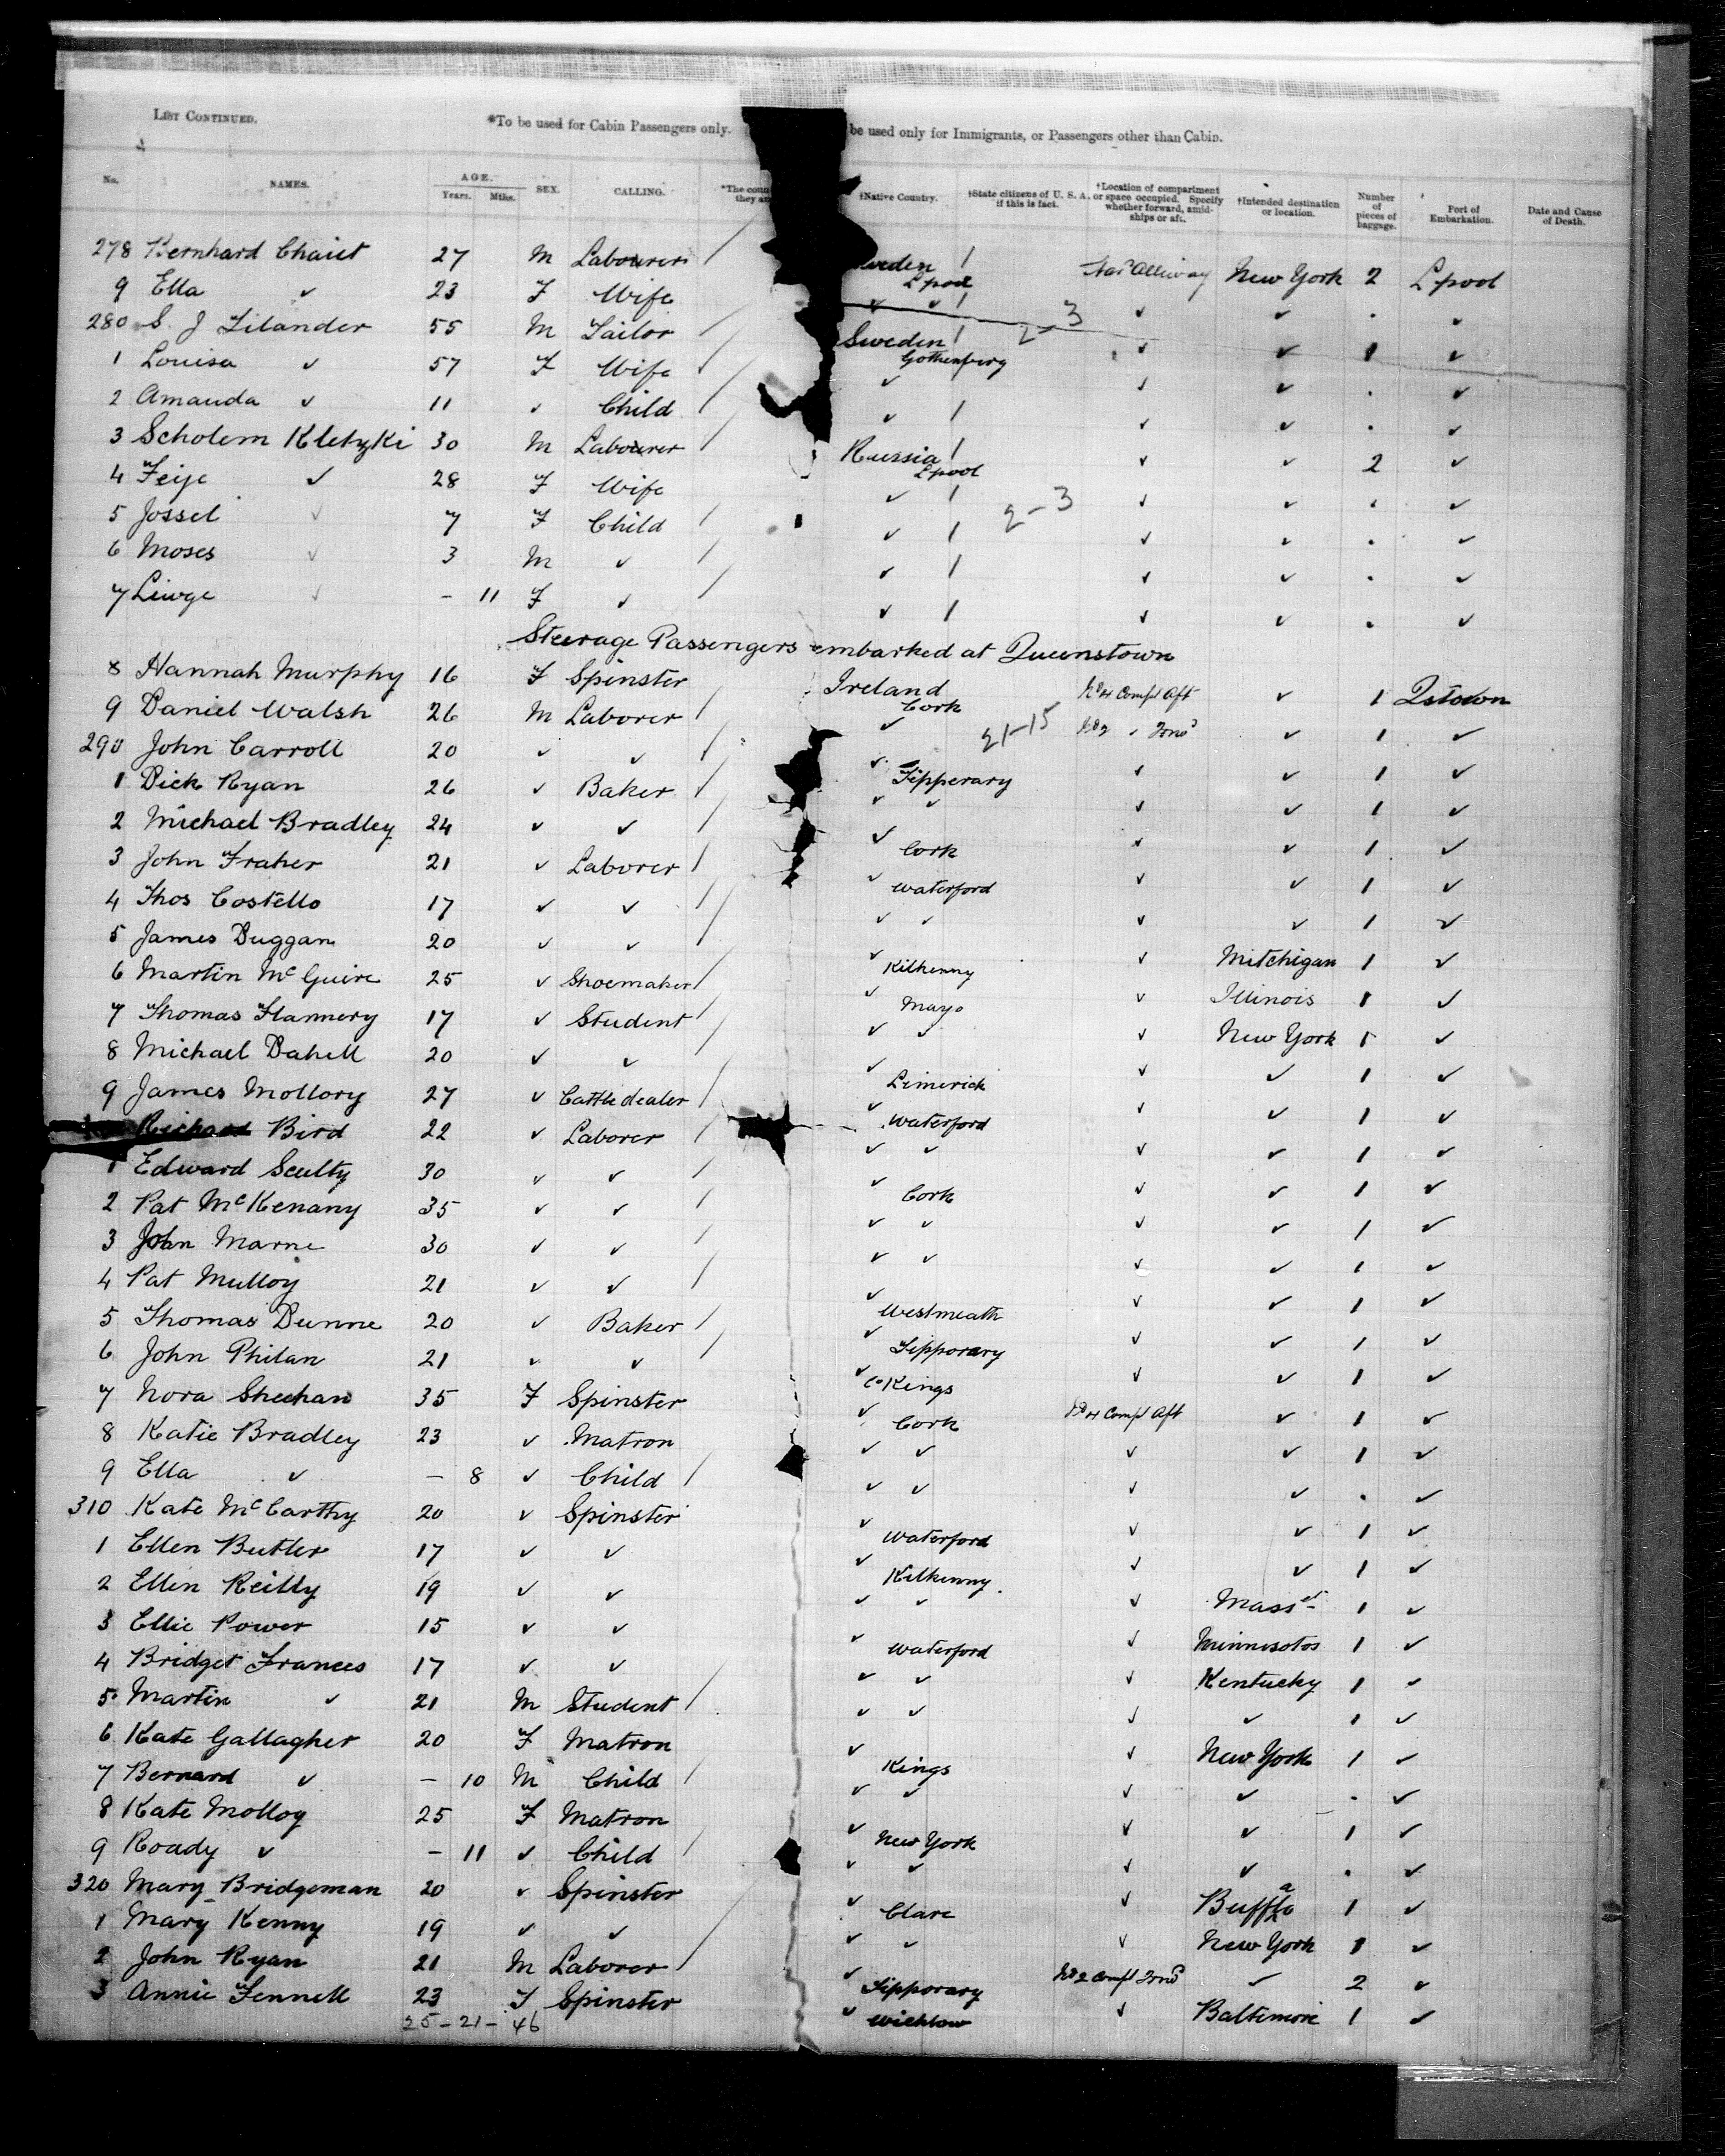 List Continued.
*To be used for Cabin Passengers only. be used only for Immigrants, or Passengers other than Cabin.
No. NAMES. AGE. Years. Mths. SEX. CALLING. *The coun they a †Native Country. †State citizens of U. S. A. if this is fact. †Location of compartment or space occupied. Specify whether forward, amidships or aft. †Intended destination or location. Number of pieces of baggage. Port of Embarkation. Date and Cause of Death.
278 Bernhard Chaiet 27 M Labourer / weden L'pool / New York 2 L'pool
9 Ella ✓ 23 F Wife ✓ ✓ / ✓ ✓ . ✓
280 S. J Lilander 55 M Tailor / Sweden Gothenberg / 2-3 ✓ ✓ 1 ✓
1 Louisa ✓ 57 F Wife / ✓ ✓ ✓ . ✓
2 Amanda ✓ 11 ✓ Child / ✓ / ✓ ✓ . ✓
3 Scholem Kletzki 30 M Labourer / Russia L'pool / ✓ ✓ 2 ✓
4 Feije ✓ 28 F Wife ✓ / ✓ ✓ . ✓
5 Jossel ✓ 7 F Child / ✓ / 2-3 ✓ ✓ . ✓
6 Moses ✓ 3 M ✓ / ✓ / ✓ ✓ . ✓
7 Liwge ✓ - 11 F ✓ / ✓ / ✓ ✓ . ✓
Steerage Passengers embarked at Queenstown
8 Hannah Murphy 16 F Spinster Ireland Cork No 4 Compt Aft ✓ 1 Qstown
9 Daniel Walsh 26 M Laborer / ✓ 21-15 No 2 ✓ Forwd ✓ 1 ✓
290 John Carroll 20 ✓ ✓ / ✓ Tipperary ✓ ✓ 1 ✓
1 Dick Ryan 26 ✓ Baker / ✓ ✓ ✓ ✓ 1 ✓
2 Michael Bradley 24 ✓ ✓ / ✓ Cork ✓ ✓ 1 ✓
3 John Fraher 21 ✓ Laborer / ✓ Waterford ✓ ✓ 1 ✓
4 Thos Costello 17 ✓ ✓ / ✓ ✓ ✓ ✓ 1 ✓
5 James Duggan 20 ✓ ✓ / ✓ Kilkenny ✓ Mitchigan 1 ✓
6 Martin McGuire 25 ✓ Shoemaker / ✓ Mayo ✓ Illinois 1 ✓
7 Thomas Flannery 17 ✓ Student / ✓ ✓ ✓ New York 1 ✓
8 Michael Dahell 20 ✓ ✓ / ✓ Limerick ✓ ✓ 1 ✓
9 James Mollory 27 ✓ Cattle dealer / ✓ Waterford ✓ ✓ 1 ✓
Richard Bird 22 ✓ Laborer / ✓ ✓ ✓ ✓ 1 ✓
1 Edward Scully 30 ✓ ✓ / ✓ Cork ✓ ✓ 1 ✓
2 Pat McKenany 35 ✓ ✓ / ✓ ✓ ✓ ✓ 1 ✓
3 John Marne 30 ✓ ✓ / ✓ ✓ ✓ ✓ 1 ✓
4 Pat Mulloy 21 ✓ ✓ / ✓ Westmeath ✓ ✓ 1 ✓
5 Thomas Dunne 20 ✓ Baker / ✓ Tipporary ✓ ✓ 1 ✓
6 John Philan 21 ✓ ✓ / ✓ Co Kings ✓ ✓ 1 ✓
7 Nora Sheehan 35 F Spinster ✓ Cork No 4 Compt Aft ✓ 1 ✓
8 Katie Bradley 23 ✓ Matron ✓ ✓ ✓ ✓ 1 ✓
9 Ella ✓ - 8 ✓ Child / ✓ ✓ ✓ ✓ . ✓
310 Kate McCarthy 20 ✓ Spinster ✓ Waterford ✓ ✓ 1 ✓
1 Ellen Butler 17 ✓ ✓ ✓ Kilkenny ✓ ✓ 1 ✓
2 Ellen Reilly 19 ✓ ✓ ✓ ✓ ✓ Masst 1 ✓
3 Ellie Power 15 ✓ ✓ ✓ Waterford ✓ Minnisotos 1 ✓
4 Bridget Frances 17 ✓ ✓ ✓ ✓ ✓ Kentucky 1 ✓
5 Martin ✓ 21 M Student / ✓ ✓ ✓ ✓ 1 ✓
6 Kate Gallagher 20 F Matron ✓ Kings ✓ New York 1 ✓
7 Bernard ✓ - 10 M Child / ✓ ✓ ✓ ✓ . ✓
8 Kate Molloy 25 F Matron ✓ New York ✓ ✓ 1 ✓
9 Roady ✓ - 11 ✓ Child / ✓ ✓ ✓ ✓ . ✓
320 Mary Bridgeman 20 ✓ Spinster ✓ Clare ✓ Buffalo 1 ✓
1 Mary Kenny 19 ✓ ✓ ✓ ✓ ✓ New York 1 ✓
2 John Ryan 21 M Laborer / ✓ Tipporary No 2 Compt Forwd ✓ 2 ✓
3 Annie Fennell 23 F Spinster ✓ Wicklow ✓ Baltimore 1 ✓
25-21-46